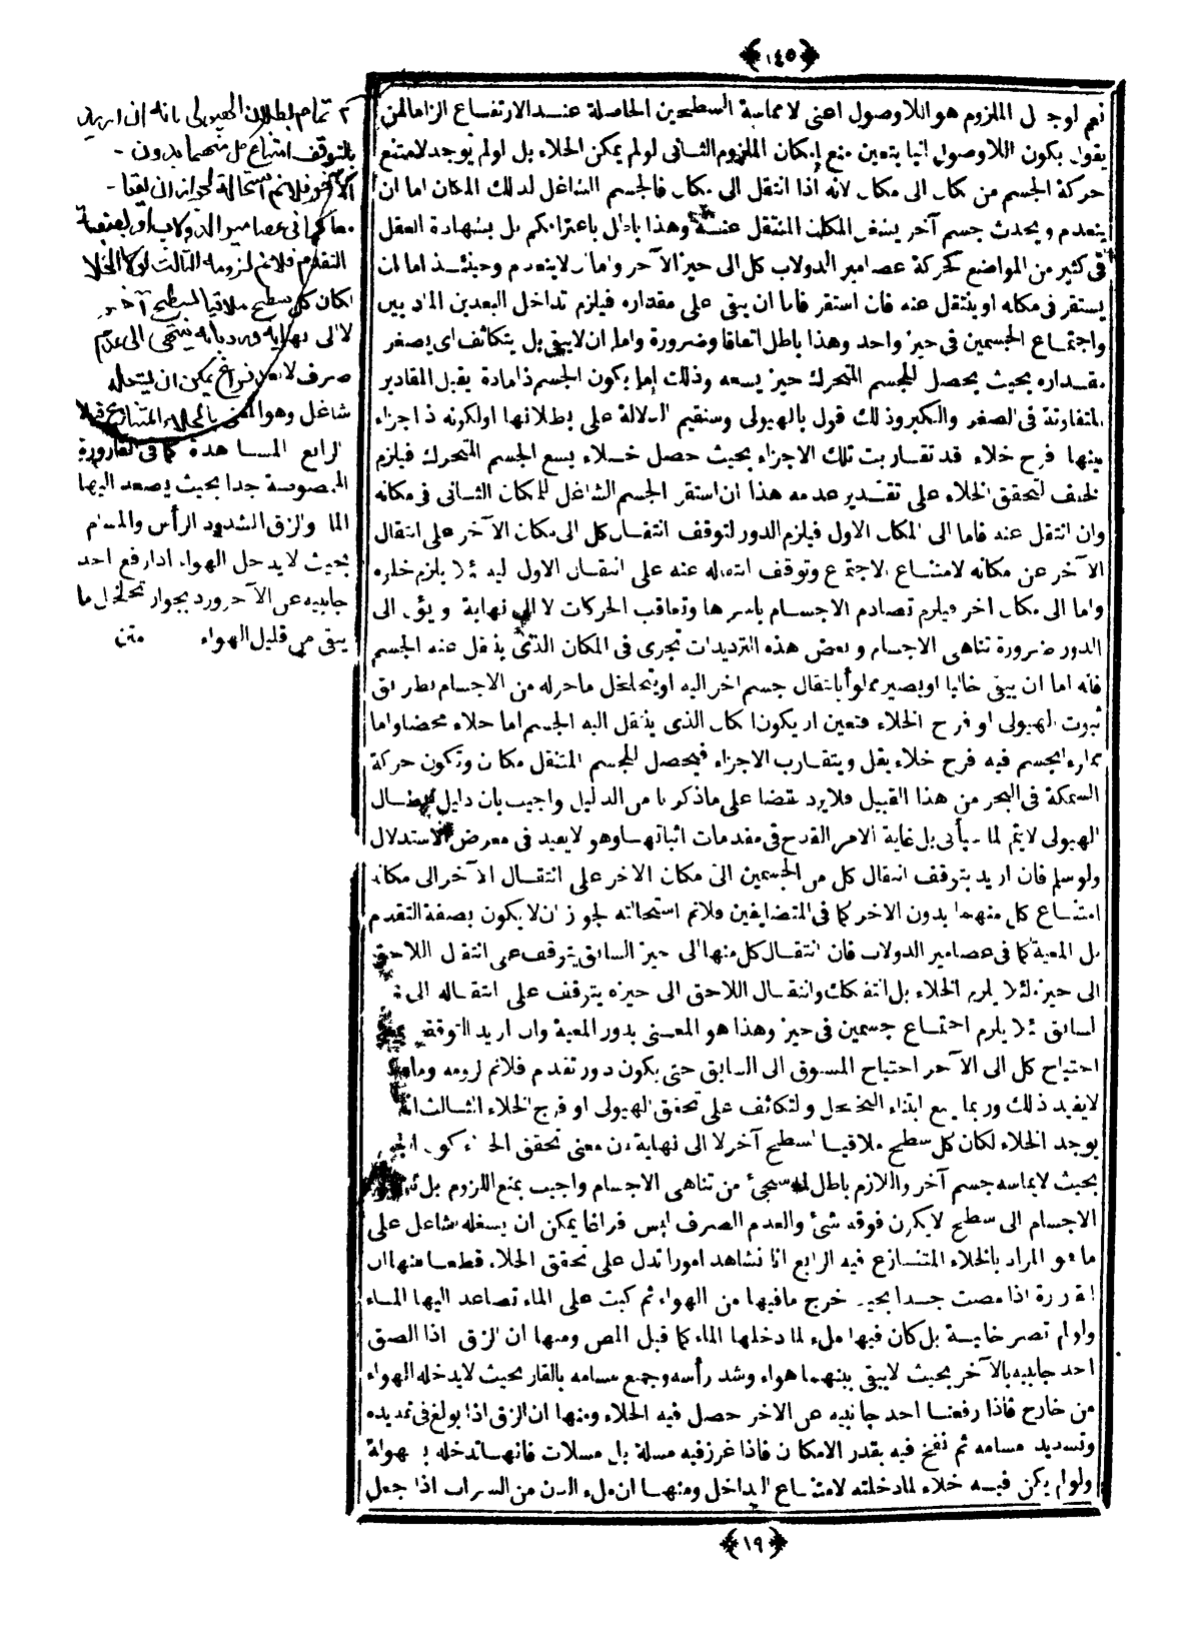 ١٤٥
نعم لوجعل الملزوم هو اللاوصول اعنى لا مماسة السطحين الحاصلة عند الارتفاع الزاما لمن
يقول بكون اللاوصول آنيا يتعين منع إمكان الملزوم الثانى لو لم يمكن الخلاء بل لو لم يوجد لامتنع
حركة الجسم من مكان الى مكان لانه إذا انتقل الى مكان فالجسم الشاغل لذلك المكان اما ان
ينعدم ويحدث جسم آخر يشغل المكان المنتقل عنه وهذا باطل باعترافكم بل بشهادة العقل
فى كثير من المواضع كحركة عصامير الدولاب كل الى حيز الآخر واما ان لا ينعدم وحينئذ اما ان
يستقر فى مكانه او ينتقل عنه فان استقر فاما ان يبقى على مقداره فيلزم تداخل البعدين الماديين
واجتماع الجسمين فى حيز واحد وهذا باطل اتفاقا وضرورة واما ان لا يبقى بل يتكاثف اى يصغر
مقداره بحيث يحصل للجسم المتحرك حيز يسعه وذلك إما بكون الجسم ذا مادة يقبل المقادير
المتفاوتة فى الصغر والكبر وذلك قول بالهيولى وسنقيم الدلالة على بطلانها او لكونه ذا اجزاء
بينها فرج خلاء قد تقاربت تلك الاجزاء بحيث حصل خلاء يسع الجسم المتحرك فيلزم
تحقق الخلاء على تقدير عدمه هذا ان استقر الجسم الشاغل للمكان الثانى فى مكانه
وان انتقل عنه فاما الى المكان الاول فيلزم الدور لتوقف انتقال كل الى مكان الآخر على انتقال
الآخر عن مكانه لامتناع الاجتماع وتوقف انتقاله عنه على انتقال الاول ليه لئلا يلزم خلوه
واما الى مكان آخر فيلزم تصادم الاجسام باسرها وتعاقب الحركات لا الى نهاية ويؤل الى
الدور ضرورة تناهى الاجسام وبعض هذه الترديدات تجرى فى المكان الذى ينتقل عنه الجسم
فانه اما ان يبقى خاليا او يصير مملوأ بانتقال جسم آخر اليه او يتخلخل ما حوله من الاجسام بطريق
ثبوت الهيولى او فرج الخلاء فتعين ان يكون المكان الذى ينتقل اليه الجسم اما خلاء محضا واما
الجسم فيه فرج خلاء يقل ويتقارب الاجزاء فيحصل للجسم المنتقل مكان وتكون حركة
السمكة فى البحر من هذا القبيل فلا يرد نقضا على ما ذكرنا من الدليل واجيب بان دليل ابطال
الهيولى لا يتم لما سيأتى بل غاية الامر القدح فى مقدمات اثباتها وهو لا يفيد فى معرض الاستدلال
ولو سلم فان اريد بتوقف انتقال كل من الجسمين الى مكان الآخر على انتقال الآخر الى مكانه
امتناع كل منهما بدون الآخر كما فى المتضايفين فلا نم استحالته لجواز ان لا يكون بصفة التقدم
بل المعية كما فى عصامير الدولاب فان انتقال كل منها الى حيز السابق يتوقف على انتقال اللاحق
الى حيزه لئلا يلزم الخلاء بل انتفكاك وانتقال اللاحق الى حيزه يتوقف على انتقاله الى
السابق لئلا يلزم اجتماع جسمين فى حيز وهذا هو المعنى بدور المعية وان اريد التوقف بمعنى
احتياج كل الى الآخر احتياج المسبوق الى السابق حتى يكون دور تقدم فلا نم لزومه وما
لا يفيد ذلك وربما يمنع ابتناء التخلخل والتكاثف على تحقق الهيولى او فرج الخلاء الثالث
يوجد الخلاء لكان كل سطح ملاقيا لسطح آخر لا الى نهاية لان معنى تحقق الخلاء كون الجسم
بحيث لا يماسه جسم آخر واللازم باطل لما سيجئ من تناهى الاجسام واجيب بمنع اللزوم بل
الاجسام الى سطح لا يكون فوقه شئ والعدم الصرف ليس فراغا يمكن ان يشغله شاغل على
ما هو المراد بالخلاء المتنازع فيه الرابع انا نشاهد امورا تدل على تحقق الخلاء قطعا منها ان
القارورة اذا مصت جدا بحيث خرج ما فيها من الهواء ثم كبت على الماء تصاعد اليها الماء
ولو لم تصر خالية بل كان فيها ملء لما دخلها الماء كما قبل المص ومنها ان الزق اذا الصق
احد جانبيه بالآخر بحيث لا يبقى بينهما هواء وشد رأسه وجميع مسامه بالقار بحيث لا يدخله الهواء
من خارج فاذا رفعنا احد جانبيه عن الآخر حصل فيه الخلاء ومنها ان الزق اذا بولغ فى تمديده
وتسديد مسامه ثم نفخ فيه بقدر الامكان فاذا غرز فيه مسلة بل مسلات فانها تدخله بسهولة
ولو لم يكن فيه خلاء لما دخلته لامتناع التداخل ومنها ان ملء الدن من الشراب اذا جعل
٢ تمام بطلان الهيولى بانه ان اريد
بالتوقف امتناع كل منهما بدون
الآخر فلا نم استحالته لجواز ان يقعا
معا كما فى عصامير الدولاب او بصفة
التقدم فلا نم لزومه الثالث لولا الخلا
لكان كل سطح ملاقيا لسطح آخر
لا الى نهاية ورد بانه ينتهى الى عدم
صرف لا فراغ يمكن ان يشغله
شاغل وهو المعنى بالخلاء المتنازع فيه
الرابع المشاهدة كما فى القارورة
الممصوصة جدا بحيث يصعد اليها
الماء والزق المشدود الرأس والمسام
بحيث لا يدخل الهواء اذا رفع احد
جانبيه عن الآخر ورد بجواز تخلخل ما
يبقى من قليل الهواء متن
١٩